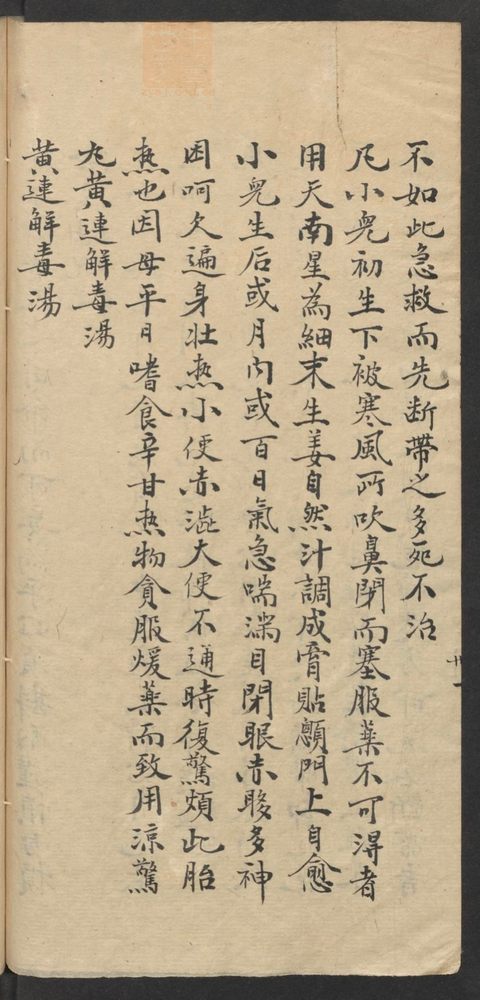 不如此急救而先断帶之多死不治
凡小兒初生下被寒風所吹鼻閉而塞服藥不可淂者
用天南星為細末生姜自然汁調成膏貼顖門上自愈
小兒生后或月內或百日氣急喘滿目閉眼赤眵多神
困呵欠遍身壮热小便赤澁大便不通時復驚煩此胎
热也因母平日嗜食辛甘热物貪服煖藥而致用涼驚
丸黄連解毒湯
黄連解毒湯
卅一